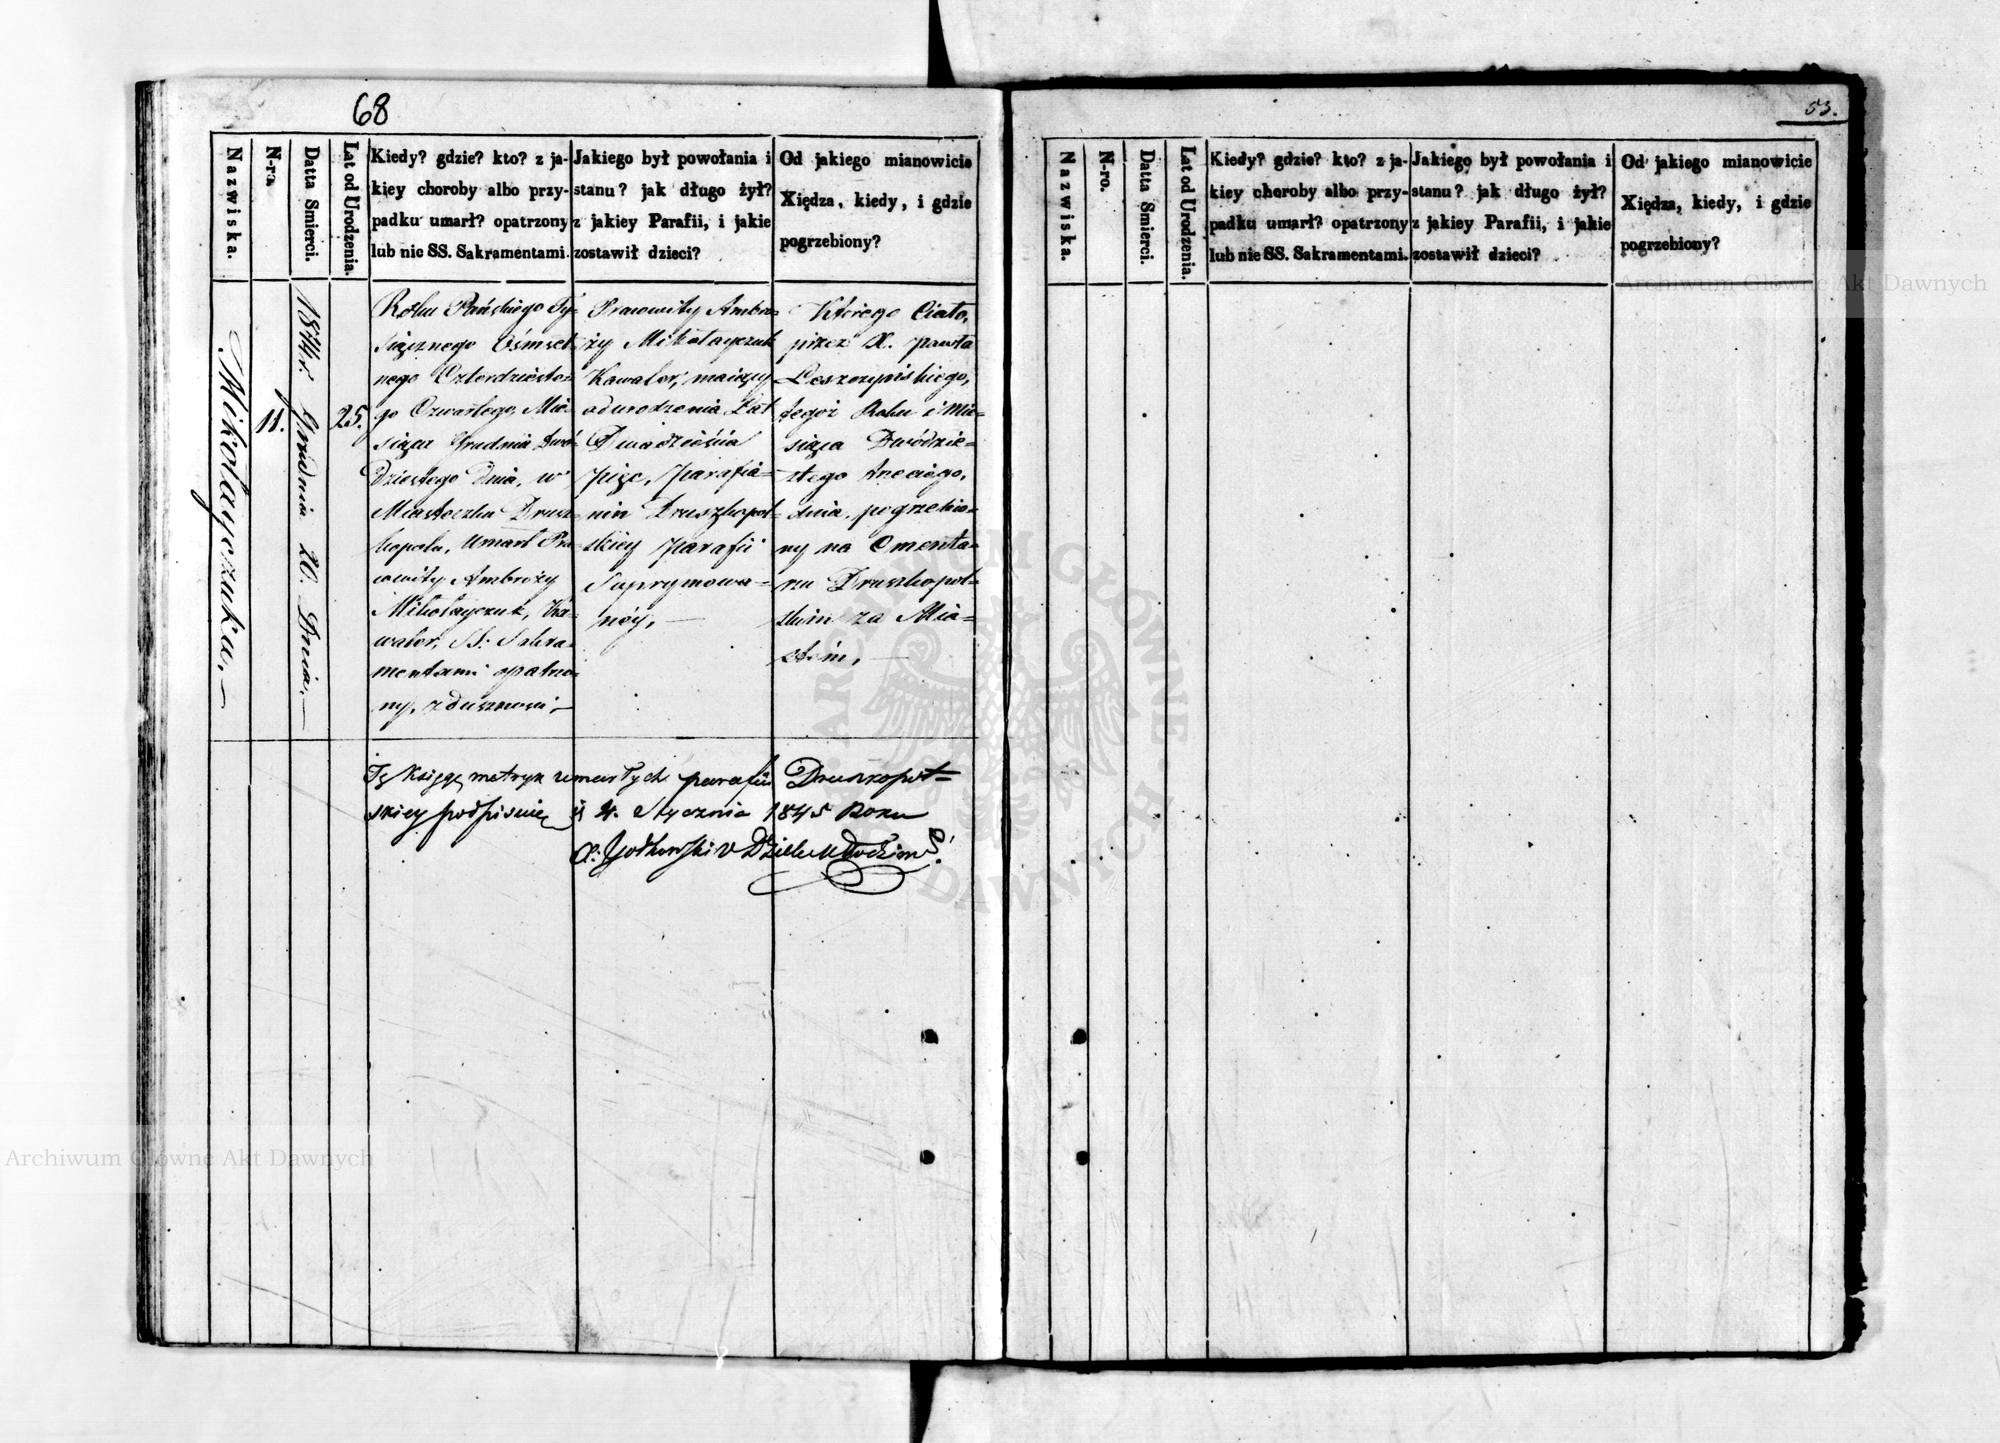 68
Nazwiska.
N-ro.
Datta Smierci.
Lat od Urodzenia.
Kiedy? gdzie? kto? z ja-
kiey choroby albo przy-
padku umarł? opatrzony
lub nie SS. Sakramentami.
Jakiego był powołania i
stanu? jak długo żył?
z jakiey Parafii, i jakie
zostawił dzieci?
Od jakiego mianowicie
Xiędza, kiedy, i gdzie
pogrzebiony?
Mikołayczuka,—
11.
1844r. Grudnia 20. Dnia,—
25.
Roku Pańskiego Ty-
siącznego Ośmset-
nego Czterdzieste-
go Czwartego, Mie-
siąca Grudnia Dwó-
dziestego Dnia, w
Miasteczku Drusz-
kopolu, Umarł Pra-
cowity Ambroży
Mikołayczuk, Ka-
waler, SS. Sakra-
mentami opatrzo-
ny, z duszności,—
Pracowity Ambro=
ży Mikołayczuk
Kawaler, maiący
od urodzenia Lat
Dwadzieścia
pięć, parafia=
nin Druszkopol=
skiey parafii
Suprymowa=
néy,—
Którego Ciało,
przez X. Pawła
Leszczyńskiego,
tegoż Roku i Mie=
siąca Dwódzie=
stego trzeciego,
dnia, pogrzebio=
ny na Cmenta=
rzu Druszkopol=
skim za Mia=
stém,—
Tę Księgę metryk umarłych parafii Druszkopol=
skiey podpisuię 4. Stycznia 1845 Roku
53.
Nazwiska.
N-ro.
Datta Smierci.
Lat od Urodzenia.
Kiedy? gdzie? kto? z ja-
kiey choroby albo przy-
padku umarł? opatrzony
lub nie SS. Sakramentami.
Jakiego był powołania i
stanu? jak długo żył?
z jakiey Parafii, i jakie
zostawił dzieci?
Od jakiego mianowicie
Xiędza, kiedy, i gdzie
pogrzebiony?
Archiwum Główne Akt Dawnych
Archiwum Główne Akt Dawnych
ARCHIWUM GŁÓWNE AKT DAWNYCH